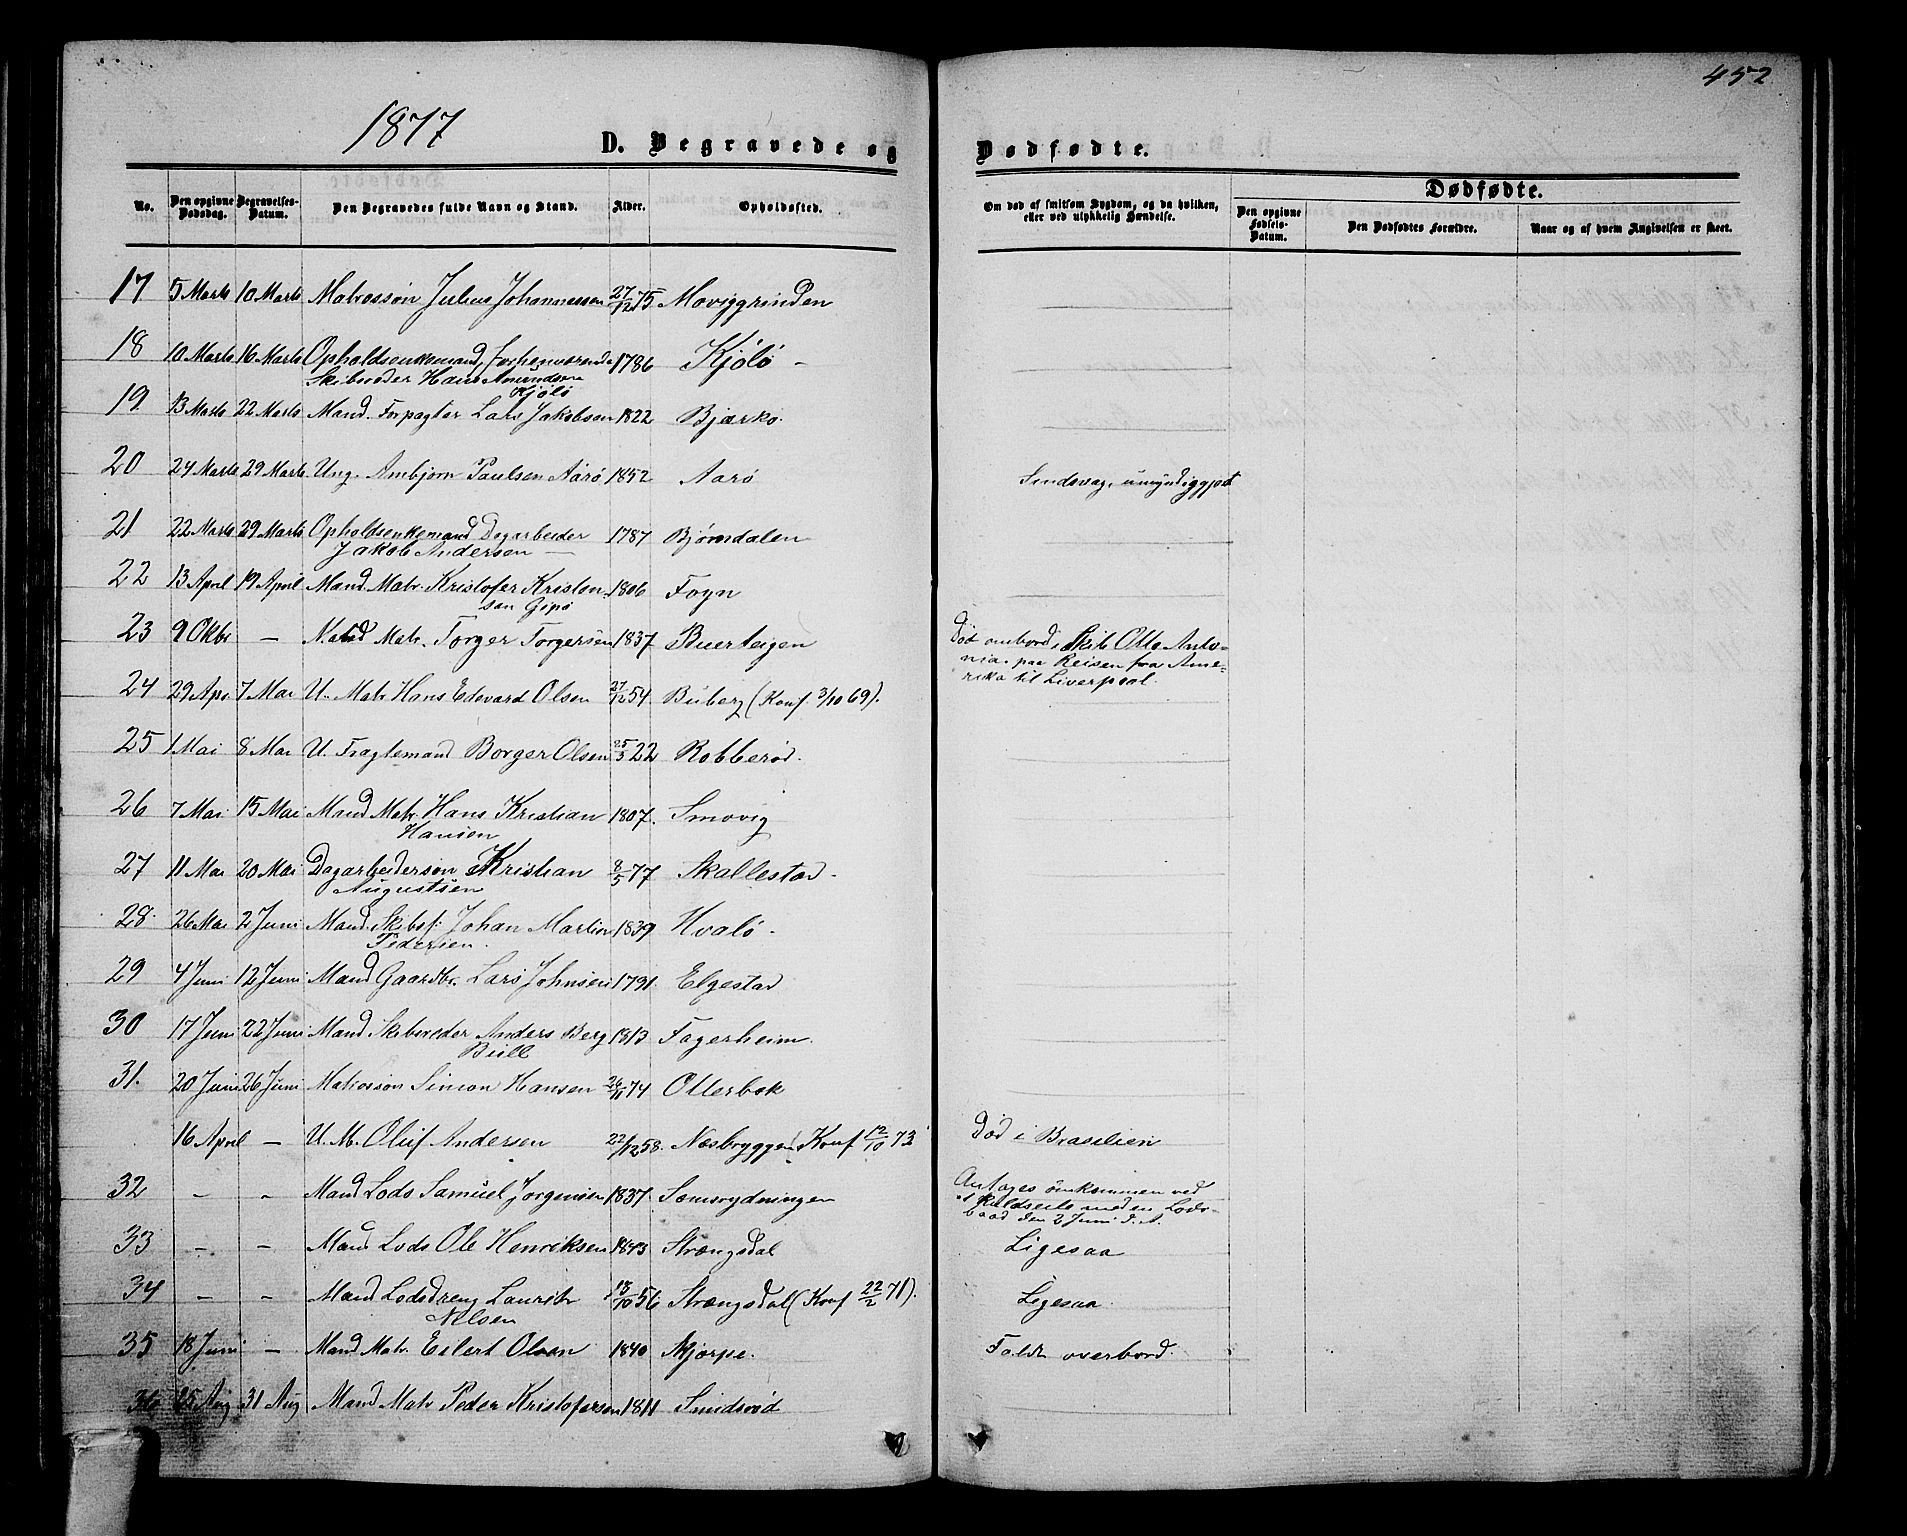 452
1877
D. Begravede og
Dødfødte.
No.
Den opgivne Dødsdag.
Begravelses-Datum.
Den Begravedes fulde Navn og Stand.
Alder.
Opholdssted.
Om død af smitsom Sygdom, og da hvilken, eller ved ulykkelig Hændelse.
Dødfødte.
Den opgivne Fødsels-Datum.
Den Dødfødtes Forældre.
Naar og af hvem Angivelsen er skeet.
17 5 Marts 10 Marts Matrossøn Julius Johannessen 27/12 75 Moviggrinden
18 10 Marts 16 Marts Opholdsenkemand, forhenværende 1786 Kjölö -
Skibsreder Hans Amundsen
Kjølø
19 13 Marts 22 Marts Mand. Forpagter Lars Jakobsen 1822 Bjærkø.
20 24 Marts 29 Marts Ung. Ambjørn Paulsen Aarø 1852 Aarø Sindsvag, umyndiggjort
21 22 Marts 29 Marts Opholdsenkemand Dagarbeider 1787 Bjørndalen
Jakob Andersen —
22 13 April 19 April Mand Matr. Kristofer Kriston 1806 Foyn
sen Gipø
23 9 Oktbr — Mand Matr. Torger Torgersen 1837 Buerteigen
Död ombord i Skib Otto Anto-
nia. paa Reisen fra Ame-
rika til Liverpool.
24 29 Apr 7 Mai U. Matr Hans Edvard Olsen 27/12 54. Buberg (Konf. 3/10 69).
25 1 Mai 8 Mai U. Fragtemand Borger Olsen 25/3 22 Robberød.
26 7 Mai 15 Mai Mand Matr. Hans Kristian 1807. Smovig
Hansen
27 11 Mai 20 Mai Dagarbeidersøn Kristian 8/5 77 Skallestad.
Augustsen
28. 26 Mai 2 Juni Mand Skibsf. Johan Martin 1839 Hvalø.
Pedersen.
29 4 Juni 12 Juni Mand Gaardbr. Lars Johnsen 1791. Elgestad
30 17 Juni 22 Juni Mand Skibsreder Anders Berg 1813 Fagerheim.
Bull
31. 20 Juni 26 Juni Matrossøn Simon Hansen 26/11 74 Otterbæk
16 April — U. M. Oluf Andersen 22/12 58. Næsbryggen Konf 12/10 73 Död i Brasilien
32 - - Mand Lods Samuel Jørgensen 1837. Sæmsrydningen
Antages omkommen ved
Kuldseile med en Lods-
baad den 2 Juni d. A.
33 - - Mand Lods Ole Henriksen 1843 Strængsdal Ligesaa
34 - - Mand Lodsdreng Lauritz 18/10 56 Strængsdal (Konf 22/2 71). Ligesaa.
Nilsen
35 18 Juni — Mand Matr. Eilert Olsen 1840 Skjærpe. Faldt overbord.
36 25 Aug 31 Aug Mand Matr Peder Kristofersen 1811 Smidsrød